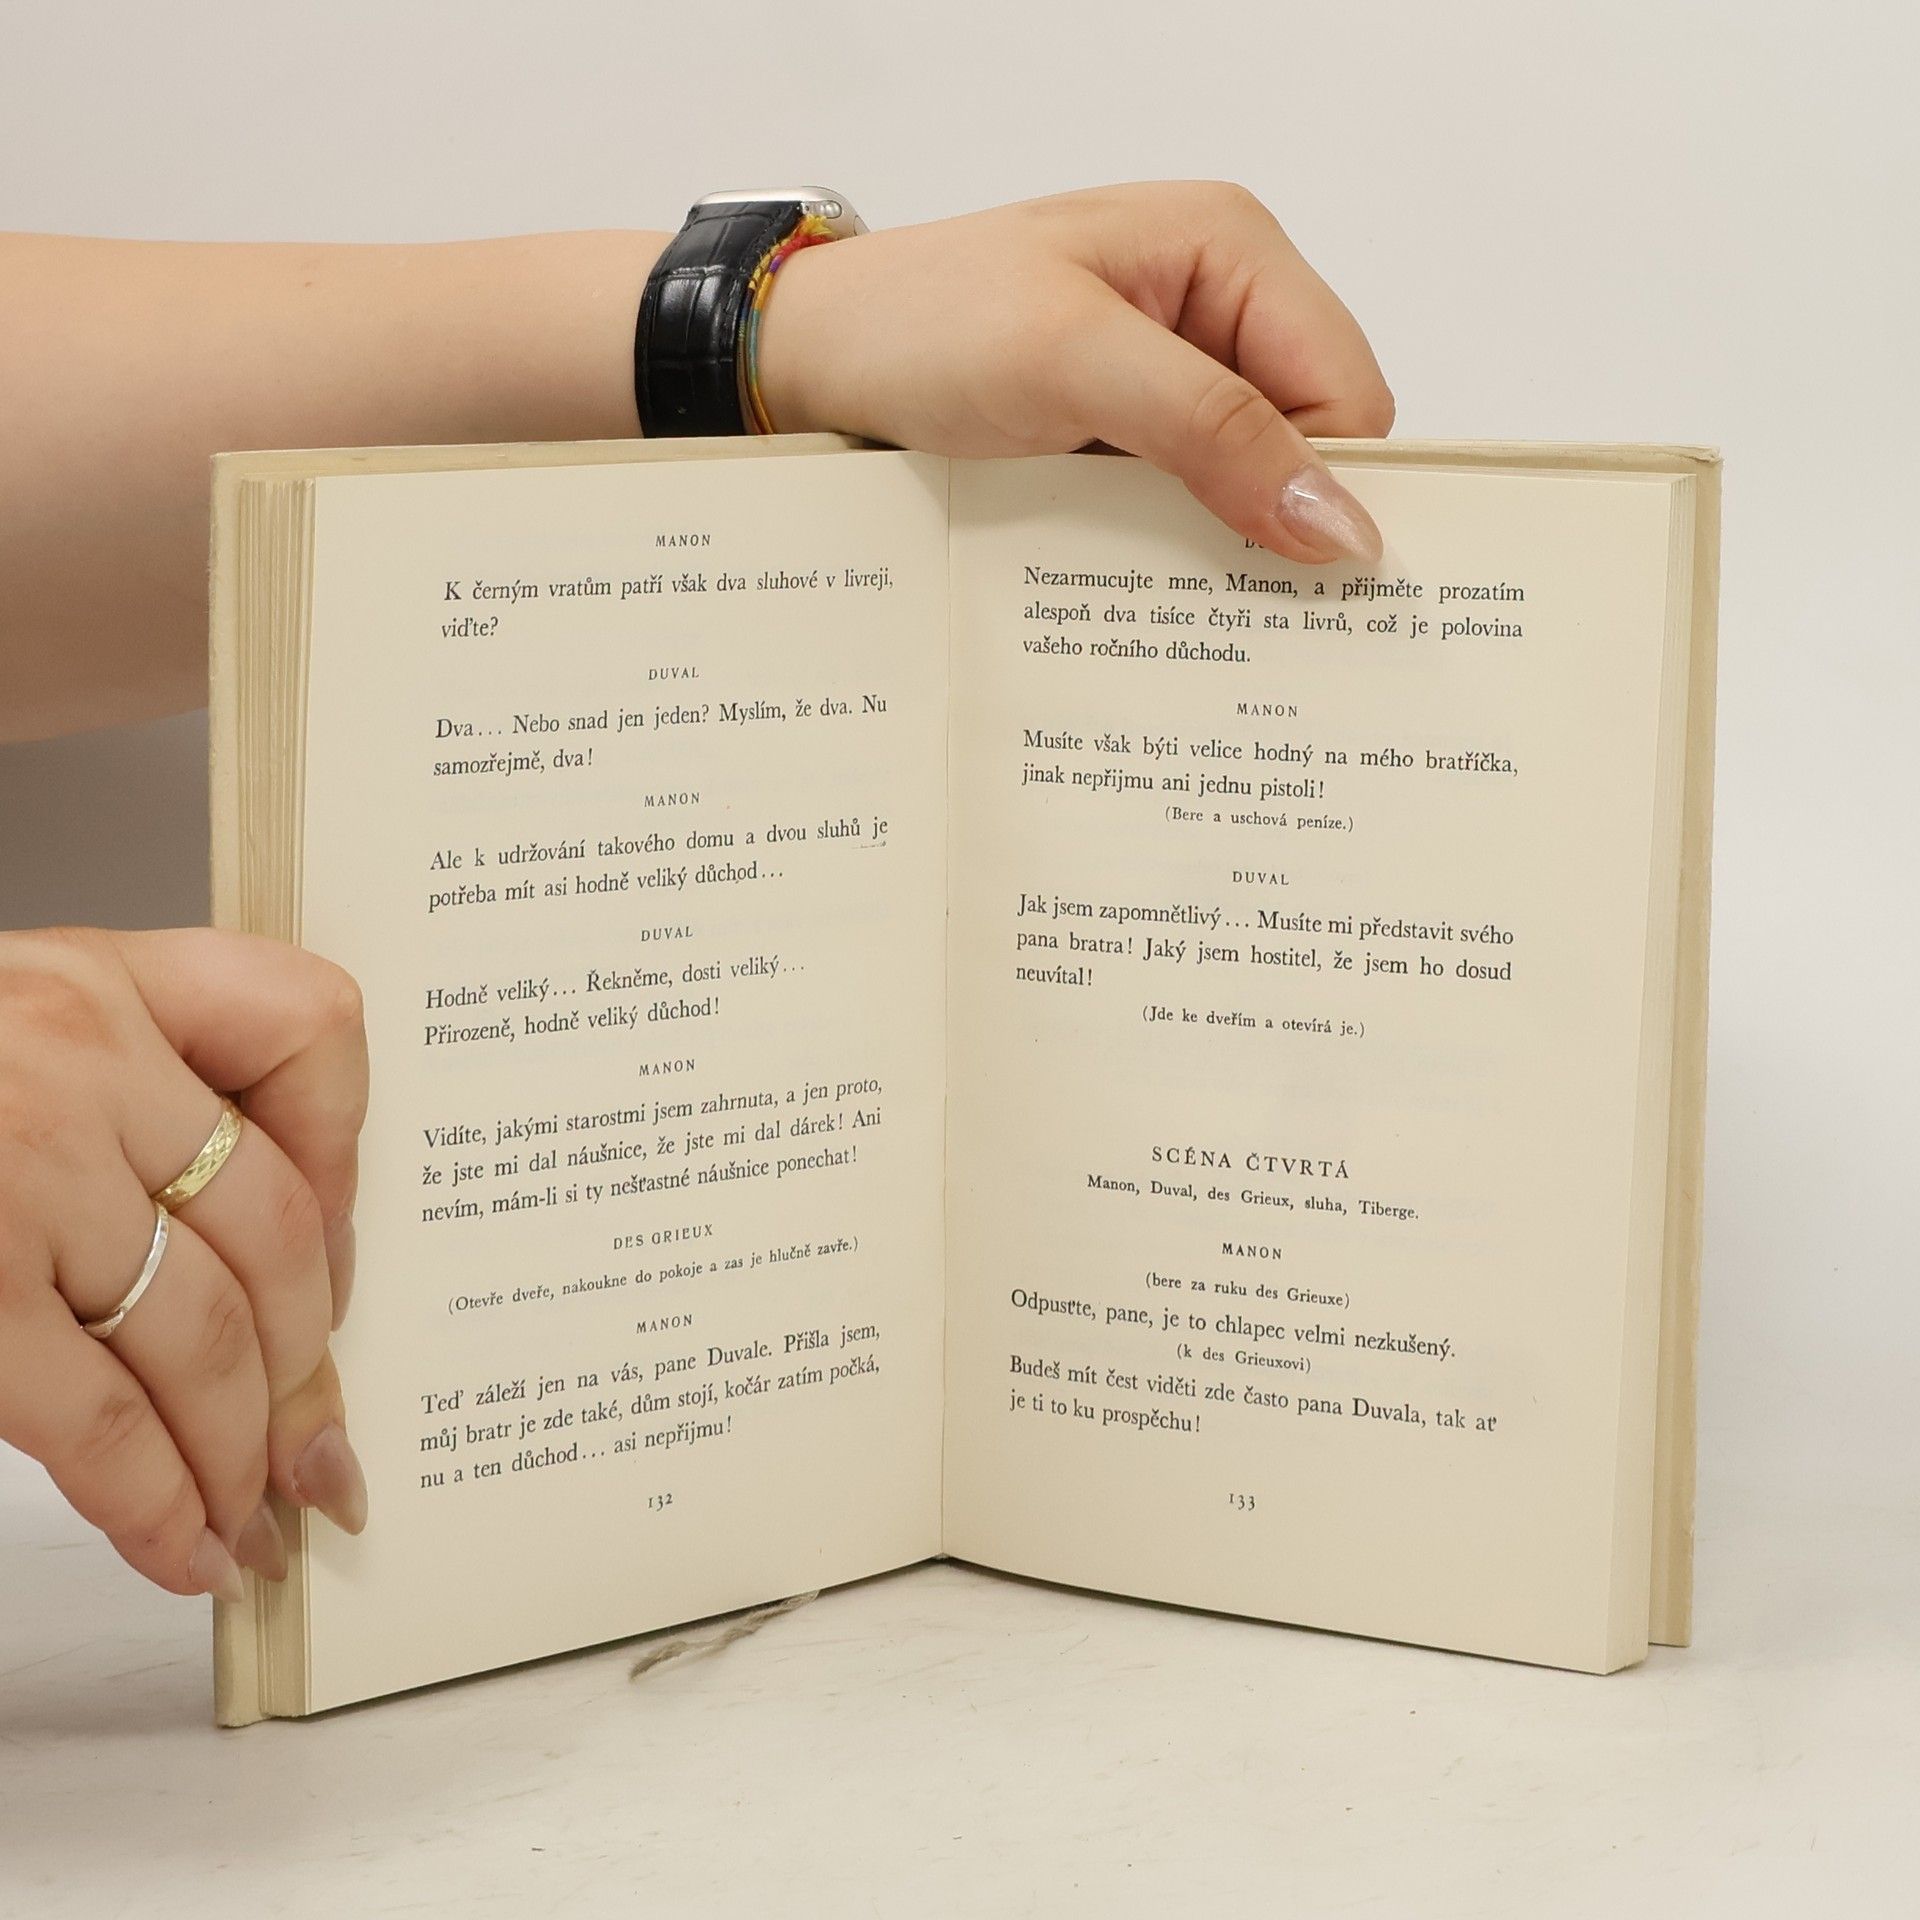 MANON
K černým vratům patří však dva sluhové v livreji,
viďte?
DUVAL
Dva... Nebo snad jen jeden? Myslím, že dva. Nu
samozřejmě, dva!
MANON
Ale k udržování takového domu a dvou sluhů je
potřeba mít asi hodně veliký důchod...
DUVAL
Hodně veliký... Řekněme, dosti veliký...
Přirozeně, hodně veliký důchod!
MANON
Vidíte, jakými starostmi jsem zahrnuta, a jen proto,
že jste mi dal náušnice, že jste mi dal dárek! Ani
nevím, mám-li si ty nešťastné náušnice ponechat!
DES GRIEUX
(Otevře dveře, nakoukne do pokoje a zas je hlučně zavře.)
MANON
Teď záleží jen na vás, pane Duvale. Přišla jsem,
můj bratr je zde také, dům stojí, kočár zatím počká,
nu a ten důchod... asi nepřijmu!
132
Nezarmucujte mne, Manon, a přijměte prozatím
alespoň dva tisíce čtyři sta livrů, což je polovina
vašeho ročního důchodu.
MANON
Musíte však býti velice hodný na mého bratříčka,
jinak nepřijmu ani jednu pistoli!
(Bere a uschová peníze.)
DUVAL
Jak jsem zapomnětlivý... Musíte mi představit svého
pana bratra! Jaký jsem hostitel, že jsem ho dosud
neuvítal!
(Jde ke dveřím a otevírá je.)
SCÉNA ČTVRTÁ
Manon, Duval, des Grieux, sluha, Tiberge.
MANON
(bere za ruku des Grieuxe)
Odpusťte, pane, je to chlapec velmi nezkušený.
(k des Grieuxovi)
Budeš mít čest viděti zde často pana Duvala, tak ať
je ti to ku prospěchu!
133